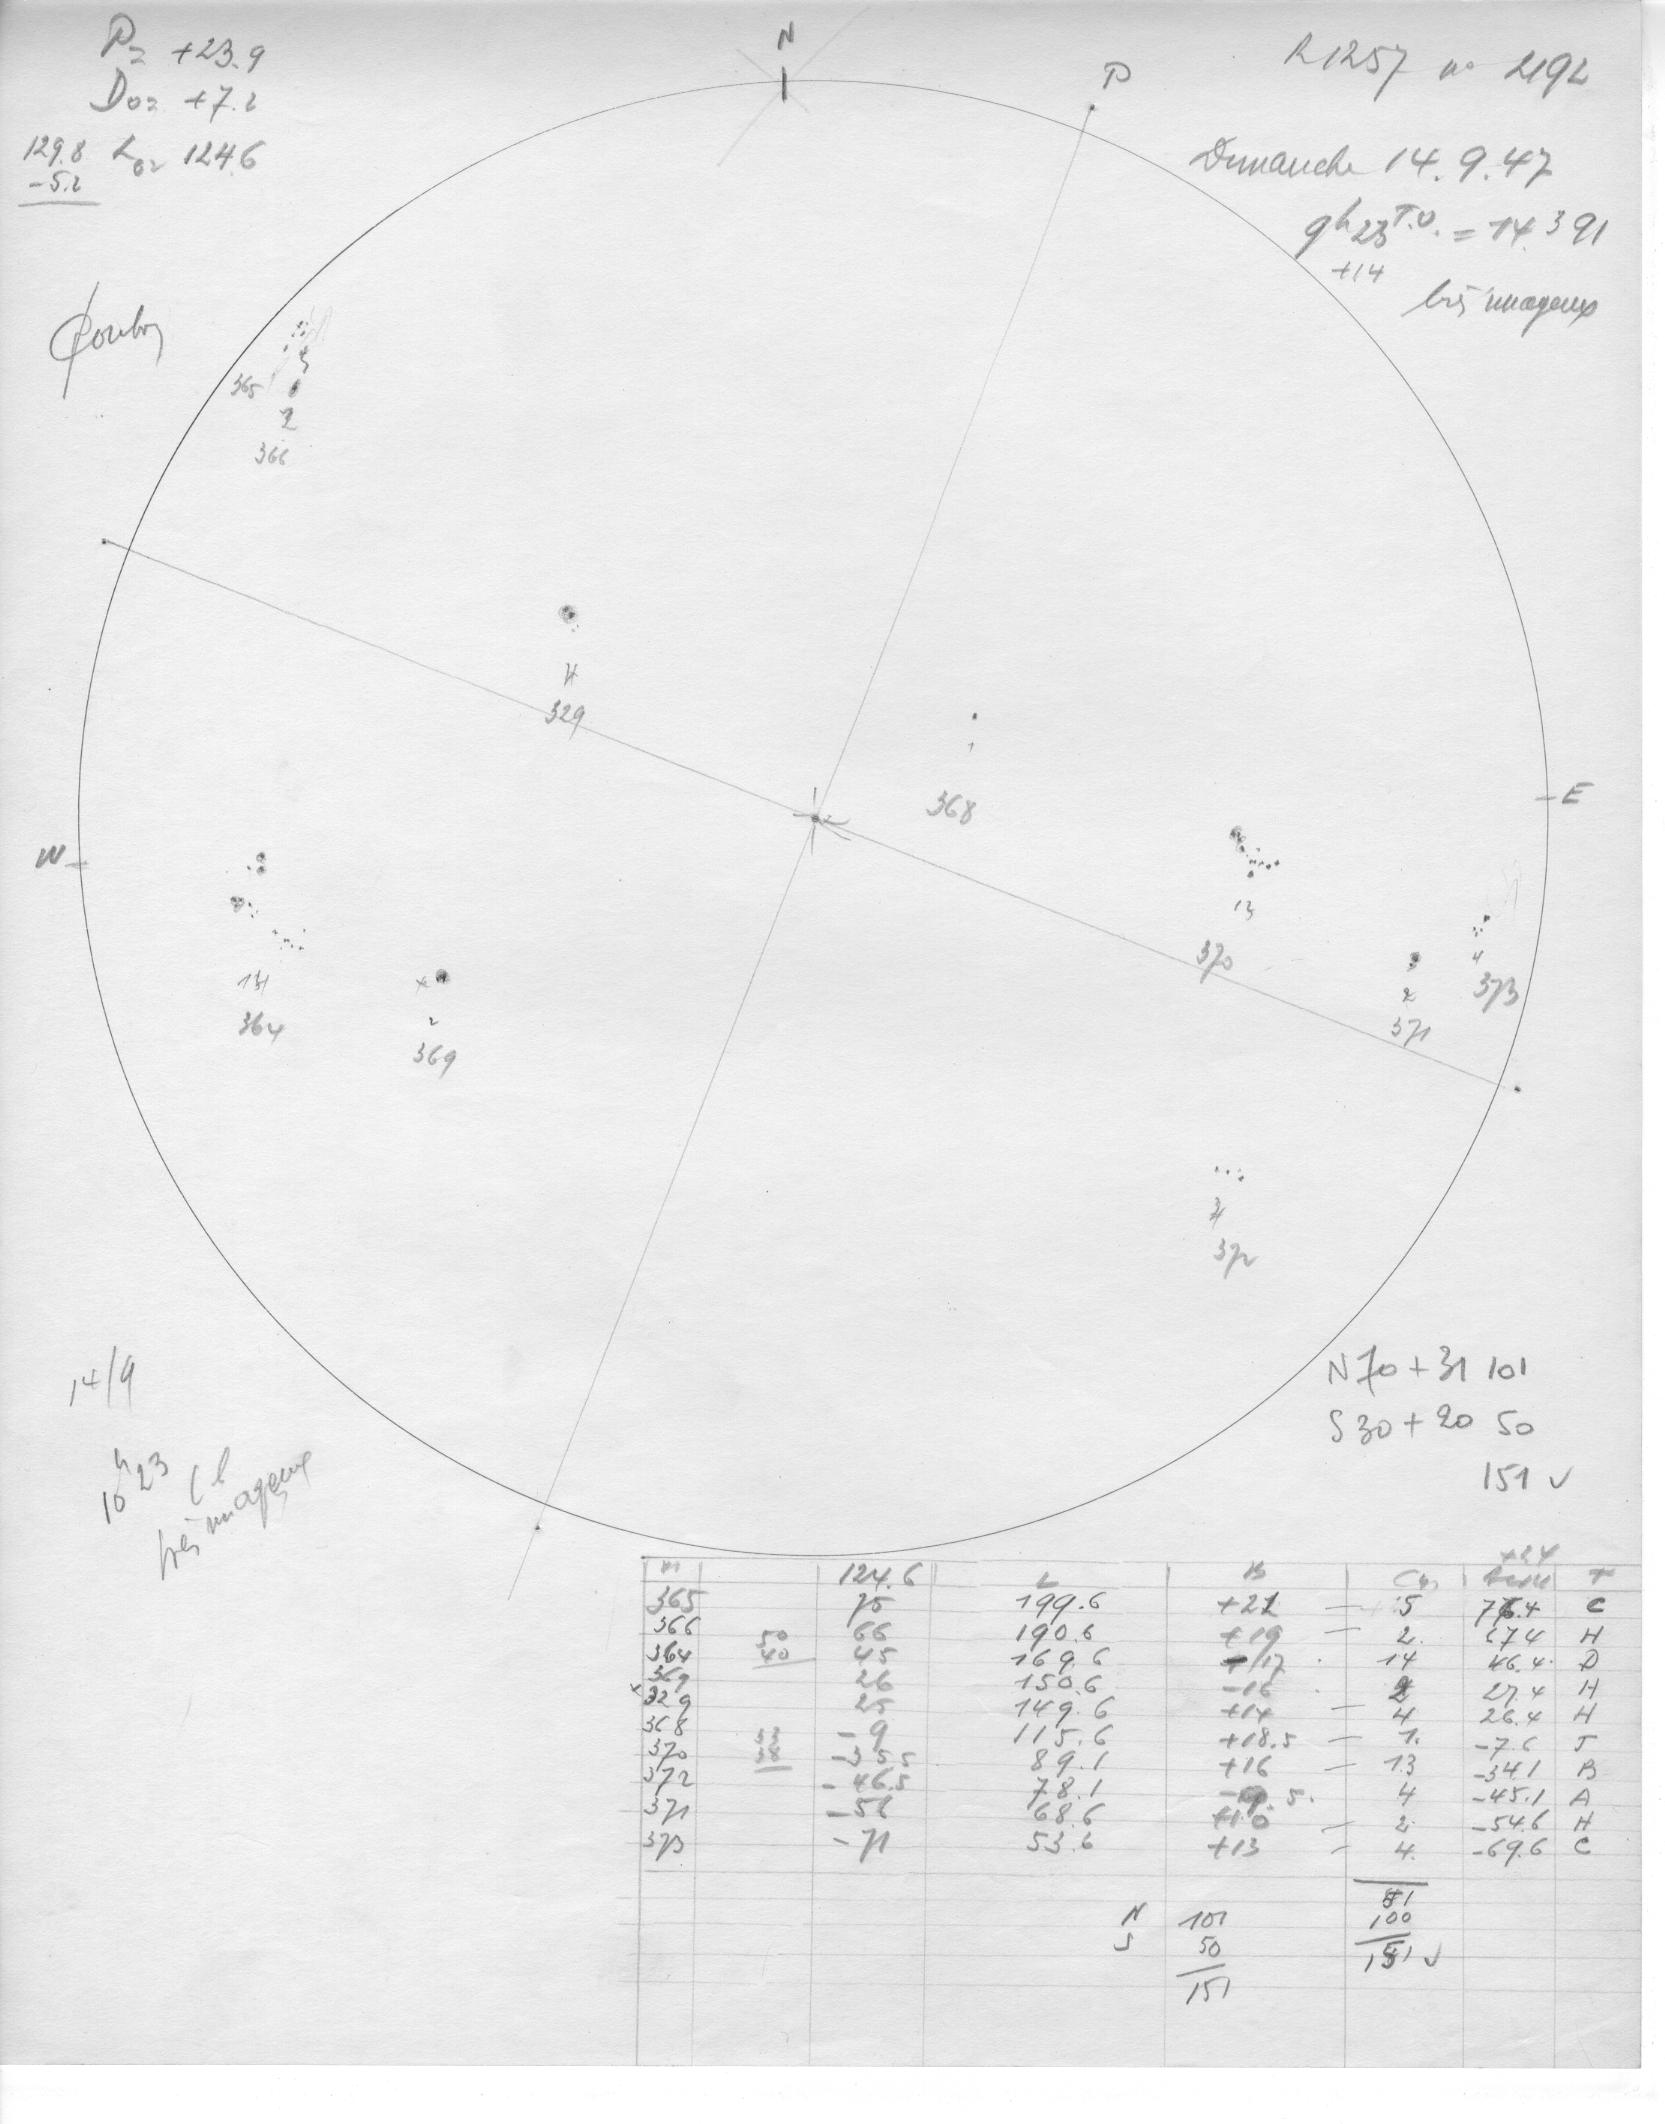 P= +23.9
D₀= +7.2
129.8 L₀= 124.6
-5.2
N
P
R1257 no 2192
Dimanche 14.9.47
9h23 T.U. = 14.391
+14
très nuageux
365
5
2
366
4
329
1
368
W
E
13
370
4
373
2
371
14
364
2
369
4
372
14/9
10h23
très nuageux
N 70 + 31 101
S 30 + 20 50
151 ✓
n 124.6 L B T
365 75 199.6 +21 — 5 76.4 C
366 66 190.6 +19 — 2 67.4 H
50
40
364 45 169.6 -17 14 46.4 D
369 26 150.6 -16 2 27.4 H
x 329 25 149.6 +14 — 4 26.4 H
368 -9 115.6 +18.5 — 1 -7.6 J
370 -35.5 89.1 +16 — 13 -34.1 B
372 -46.5 78.1 4 -45.1 A
371 -56 68.6 +10 — 2 -54.6 H
373 -71 53.6 +13 — 4 -69.6 C
N 101
S 50
151
51
100
151 ✓